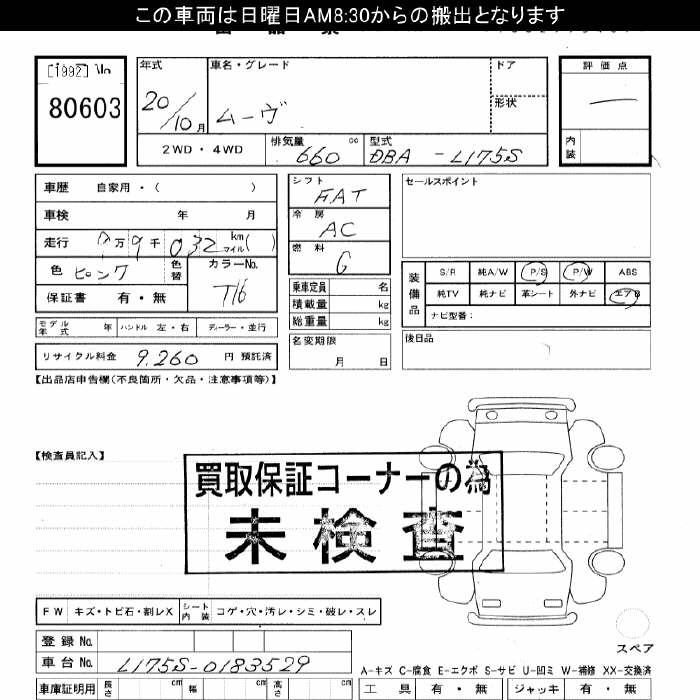 この車両は日曜日AM8:30からの搬出となります
[1992] No
80603
年式 20/10月
車名・グレード ムーヴ
ドア
形状
評価点
—
内装
2WD・4WD
排気量 660 cc
型式 DBA - L175S
車歴 自家用・( )
車検 年 月
走行 万9千032 km マイル( )
色 ピンク 色替
カラーNo. T16
保証書 有・無
シフト FAT
冷房 AC
燃料 G
乗車定員 名
積載量 kg
総重量 kg
名変期限 月 日
セールスポイント
装備品
S/R 純A/W P/S P/W ABS
純TV 純ナビ 革シート 外ナビ エアB
ナビ型番:
後日品
モデル年式 年 ハンドル 左・右 ディーラー・並行
リサイクル料金 9,260 円 預託済
【出品店申告欄(不良箇所・欠品・注意事項等)】
【検査員記入】
買取保証コーナーの為
未検査
FW キズ・トビ石・割レX シート内装 コゲ・穴・汚レ・シミ・破レ・スレ
登録No.
車台No. L175S-0183529
スペア
A-キズ C-腐食 E-エクボ S-サビ U-凹ミ W-補修 XX-交換済
車庫証明用 長さ cm 幅 cm 高さ cm
工具 有・無 ジャッキ 有・無